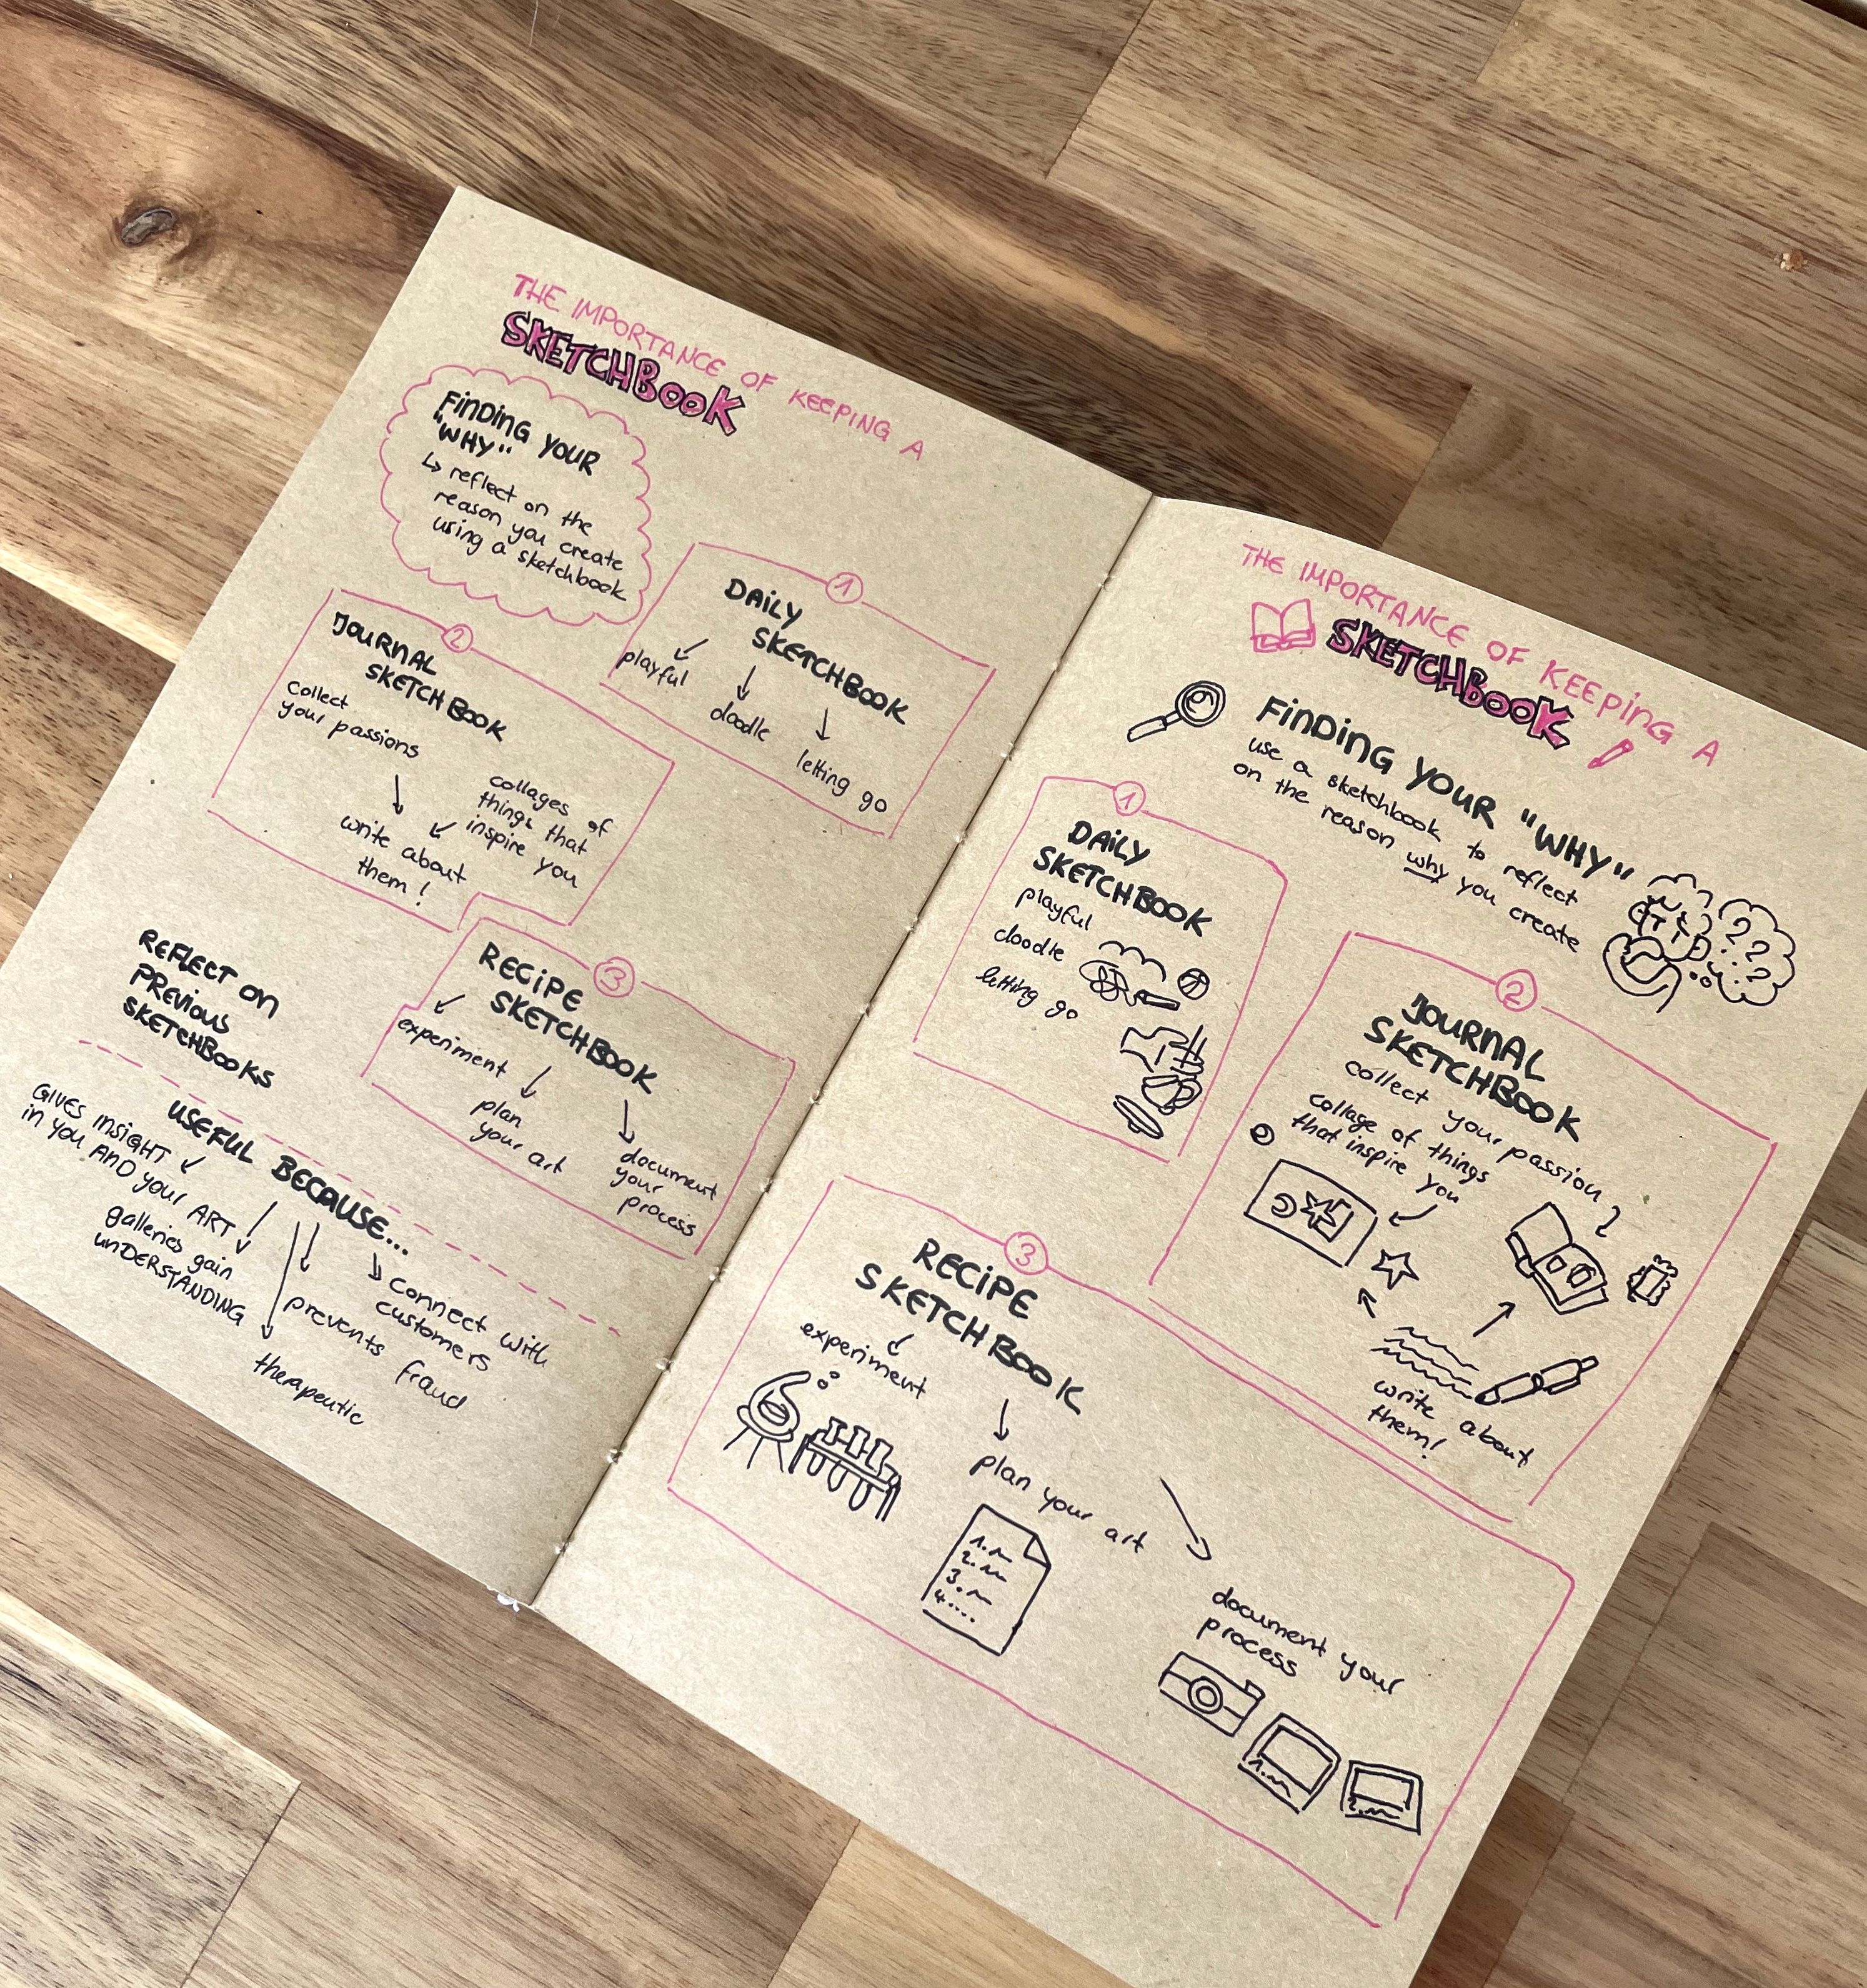 THE IMPORTANCE OF KEEPING A
SKETCHBOOK
FINDING YOUR
"WHY"
↳ reflect on the
reason you create
using a sketchbook
1
DAILY
SKETCHBOOK
playful
doodle
letting go
2
JOURNAL
SKETCHBOOK
collect
your passions
collages of
things that
inspire you
write about
them!
3
RECIPE
SKETCHBOOK
experiment
plan
your art
document
your
process
REFLECT ON
PREVIOUS
SKETCHBOOKS
USEFUL BECAUSE...
GIVES INSIGHT
IN YOU AND YOUR ART
galleries gain
UNDERSTANDING
therapeutic
prevents fraud
connect with
customers
THE IMPORTANCE OF KEEPING A
SKETCHBOOK
FINDING YOUR "WHY"
use a sketchbook to reflect
on the reason why you create
? ?
? ?
1
DAILY
SKETCHBOOK
playful
doodle
letting go
2
JOURNAL
SKETCHBOOK
collect your passion
collage of things
that inspire you
write about
them!
3
RECIPE
SKETCHBOOK
experiment
plan your art
1.
2.
3.
4....
document your
process
1.
2.